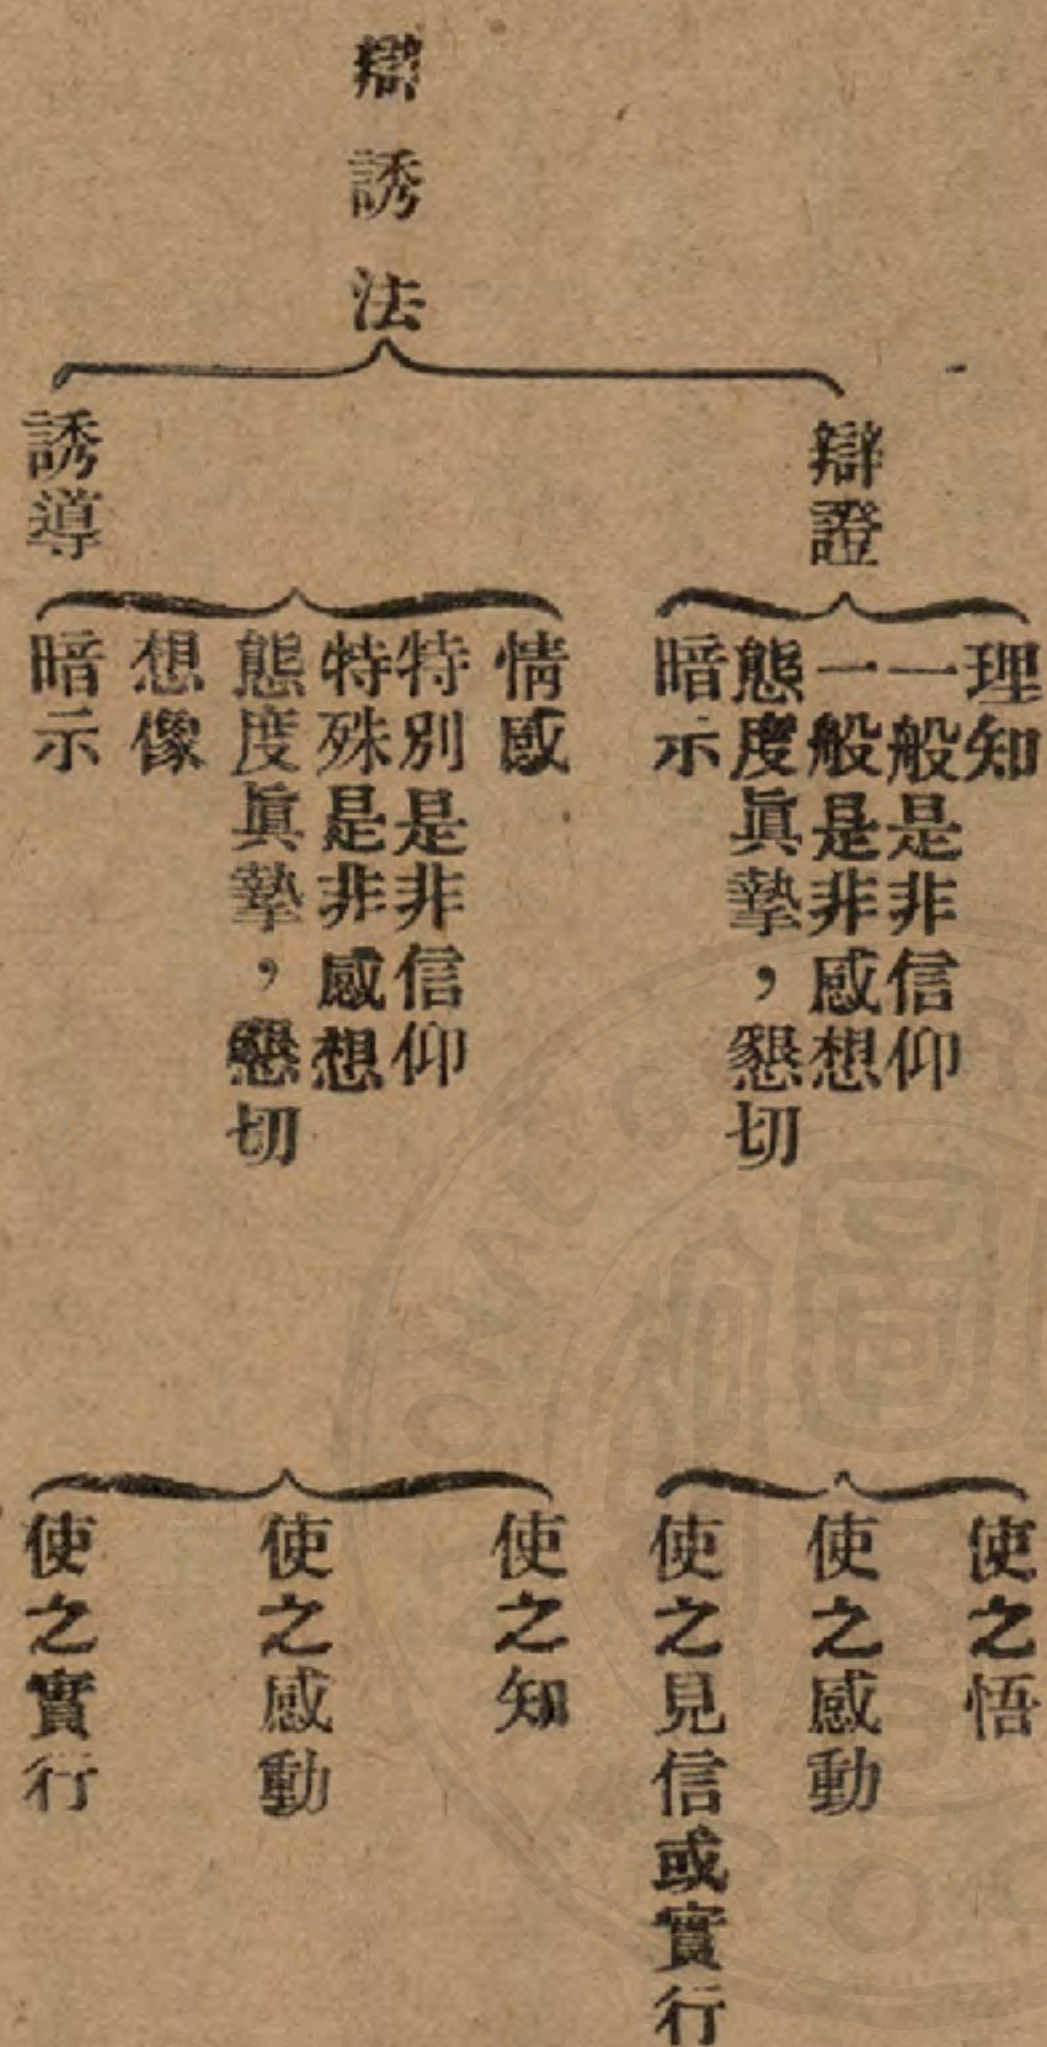 辯誘法
辯證
理知
一般是非信仰
一般是非感想
態度眞摯，懇切
暗示
使之悟
使之感動
使之見信或實行
誘導
情感
特別是非信仰
特殊是非感想
態度眞摯，懇切
想像
暗示
使之知
使之感動
使之實行